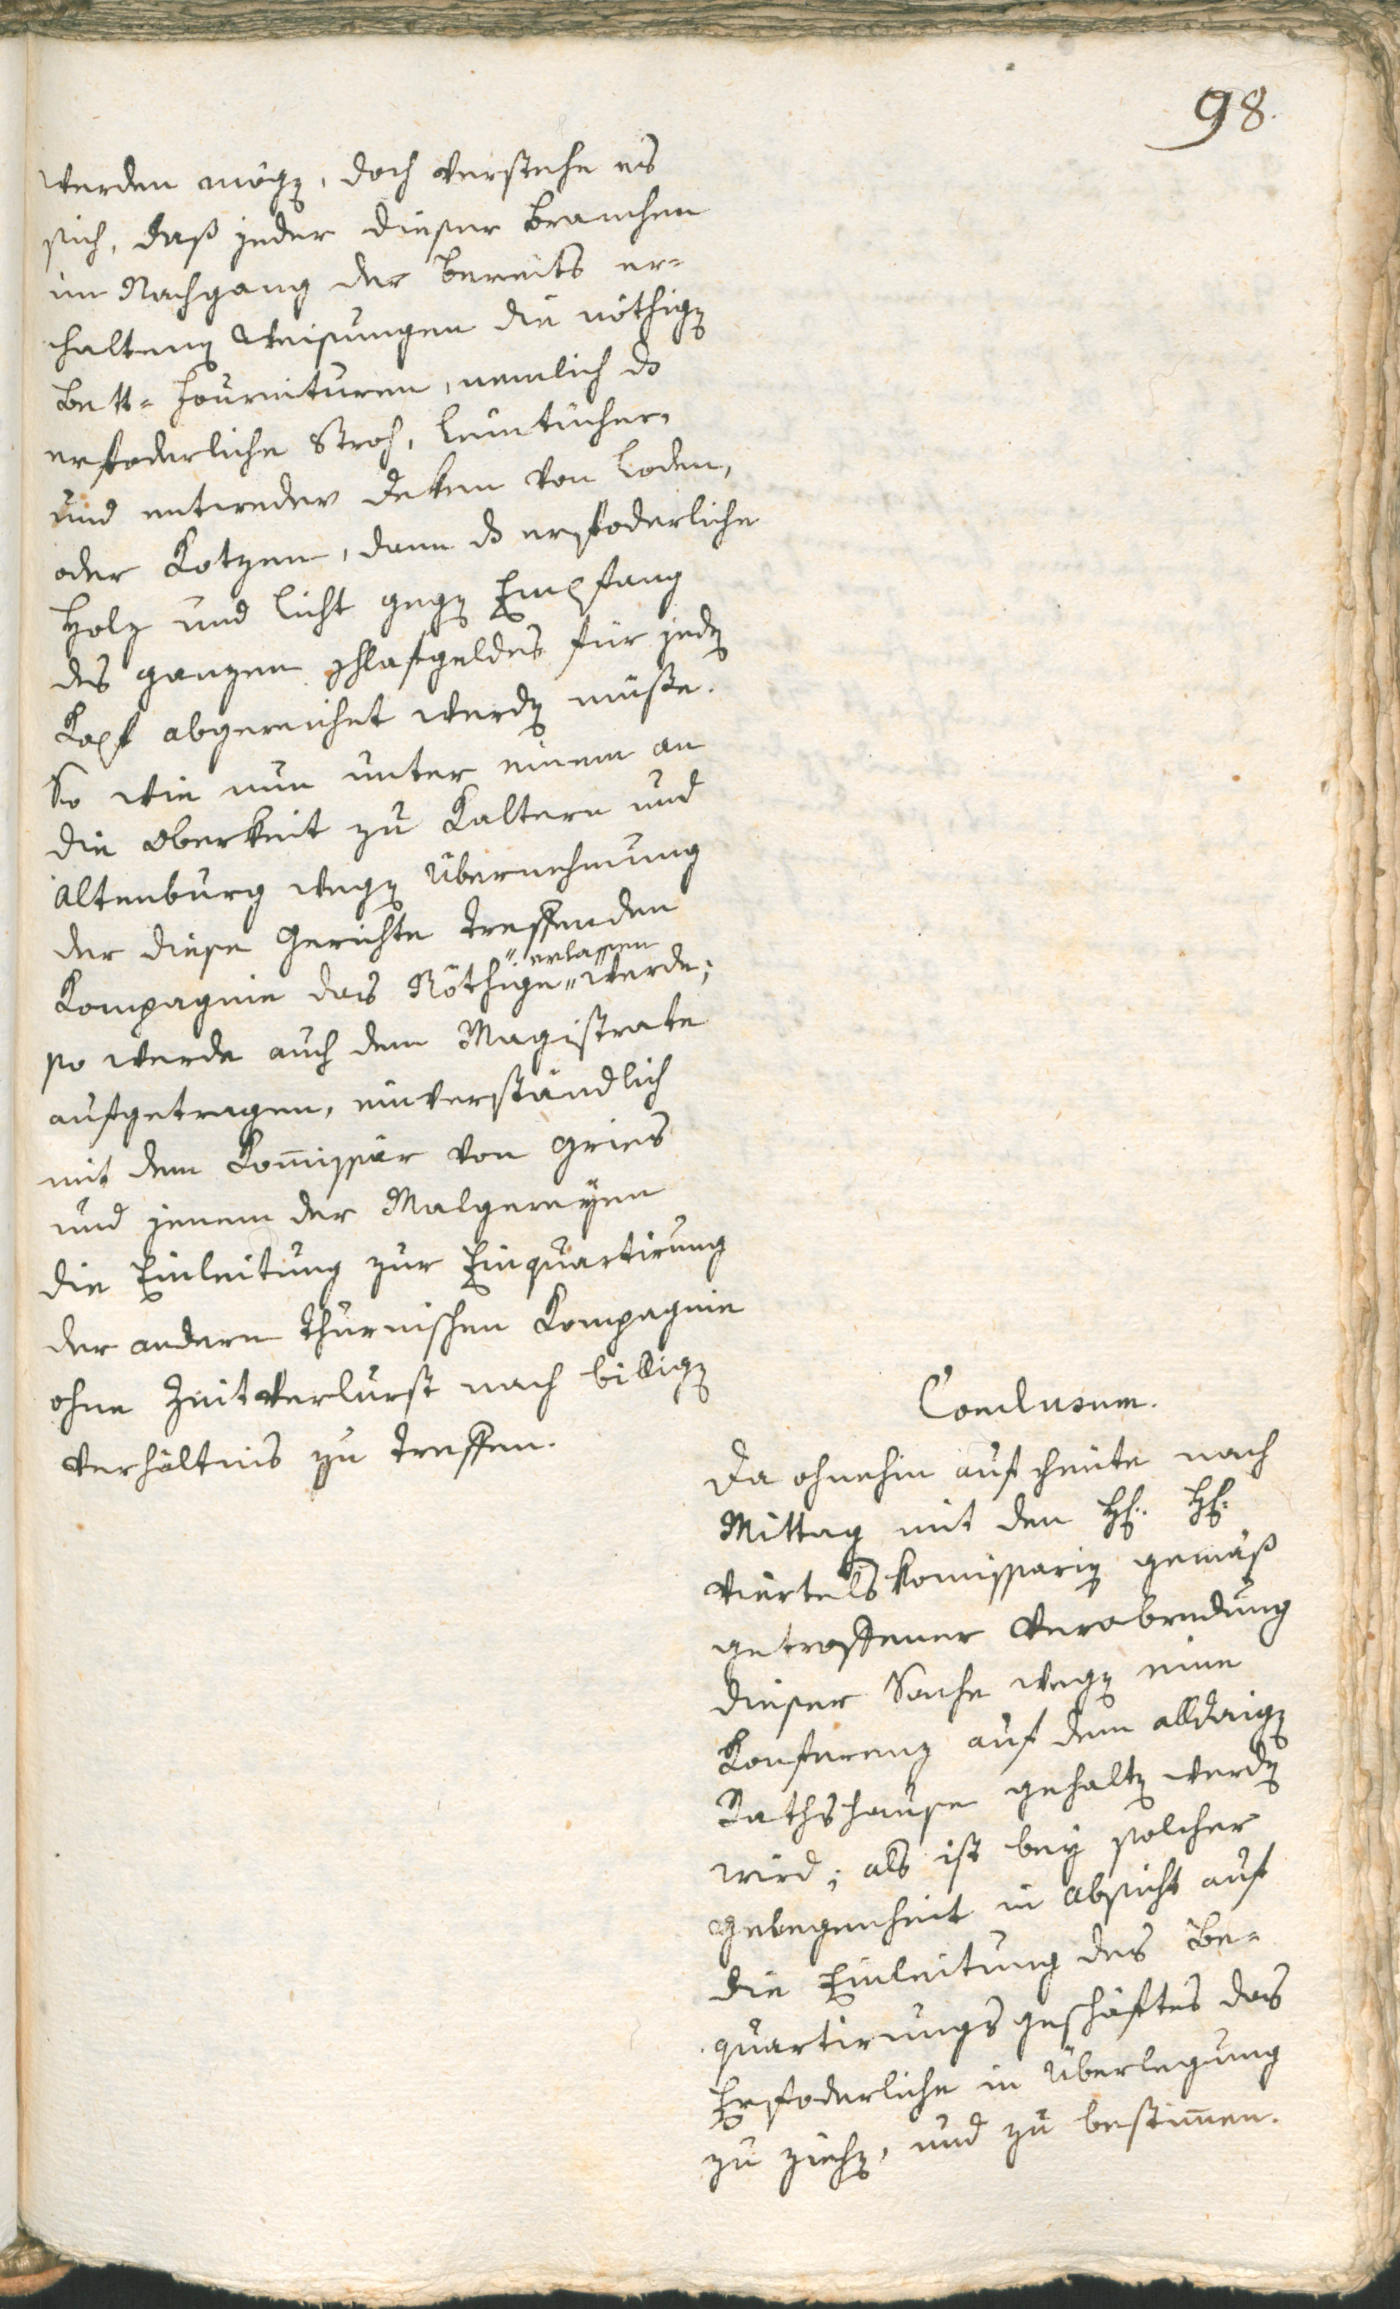 98.
werden mögen, doch verstehe es
sich, daß jeder dieser Branchen
im Nachgang der bereits er=
haltenen Weisungen die nöthigen
Bett=Fournituren, nemlich das
erfoderliche Stroh, Leintücher,
und entweder Deken von Loden,
oder Kotzen, dann das erfoderliche
Holz und Licht gegen Empfang
des ganzen Schlafgeldes für jeden
Kopf abgereichet werden müße.
So wie nun unter einem an
die Oberkeit zu Kaltern und
Altenburg wegen Übernehmung
der diese Gerichte treffenden
Kompagnie das Nöthige "erlassen" werde;
so werde auch dem Magistrate
aufgetragen, einverständlich
mit dem Kommissär von Gries
und jenem der Malgreyen
die Einleitung zur Einquartirung
der andern Thurnischen Kompagnie
ohne Zeitverlurst nach billigen
Verhältnis zu treffen.
Conclusum.
Da ohnehin auf heute nach
Mittag mit den H. H.
Viertelskommissarien gemäß
getroffener Verabredung
dieser Sache wegen eine
Konferenz auf dem alldaigen
Rathshause gehalten werden
wird; als ist bey solcher
Gelegenheit in Absicht auf
die Einleitung des Be=
quartirungsgeschäftes das
Erfoderliche in Überlegung
zu ziehen, und zu bestimmen.